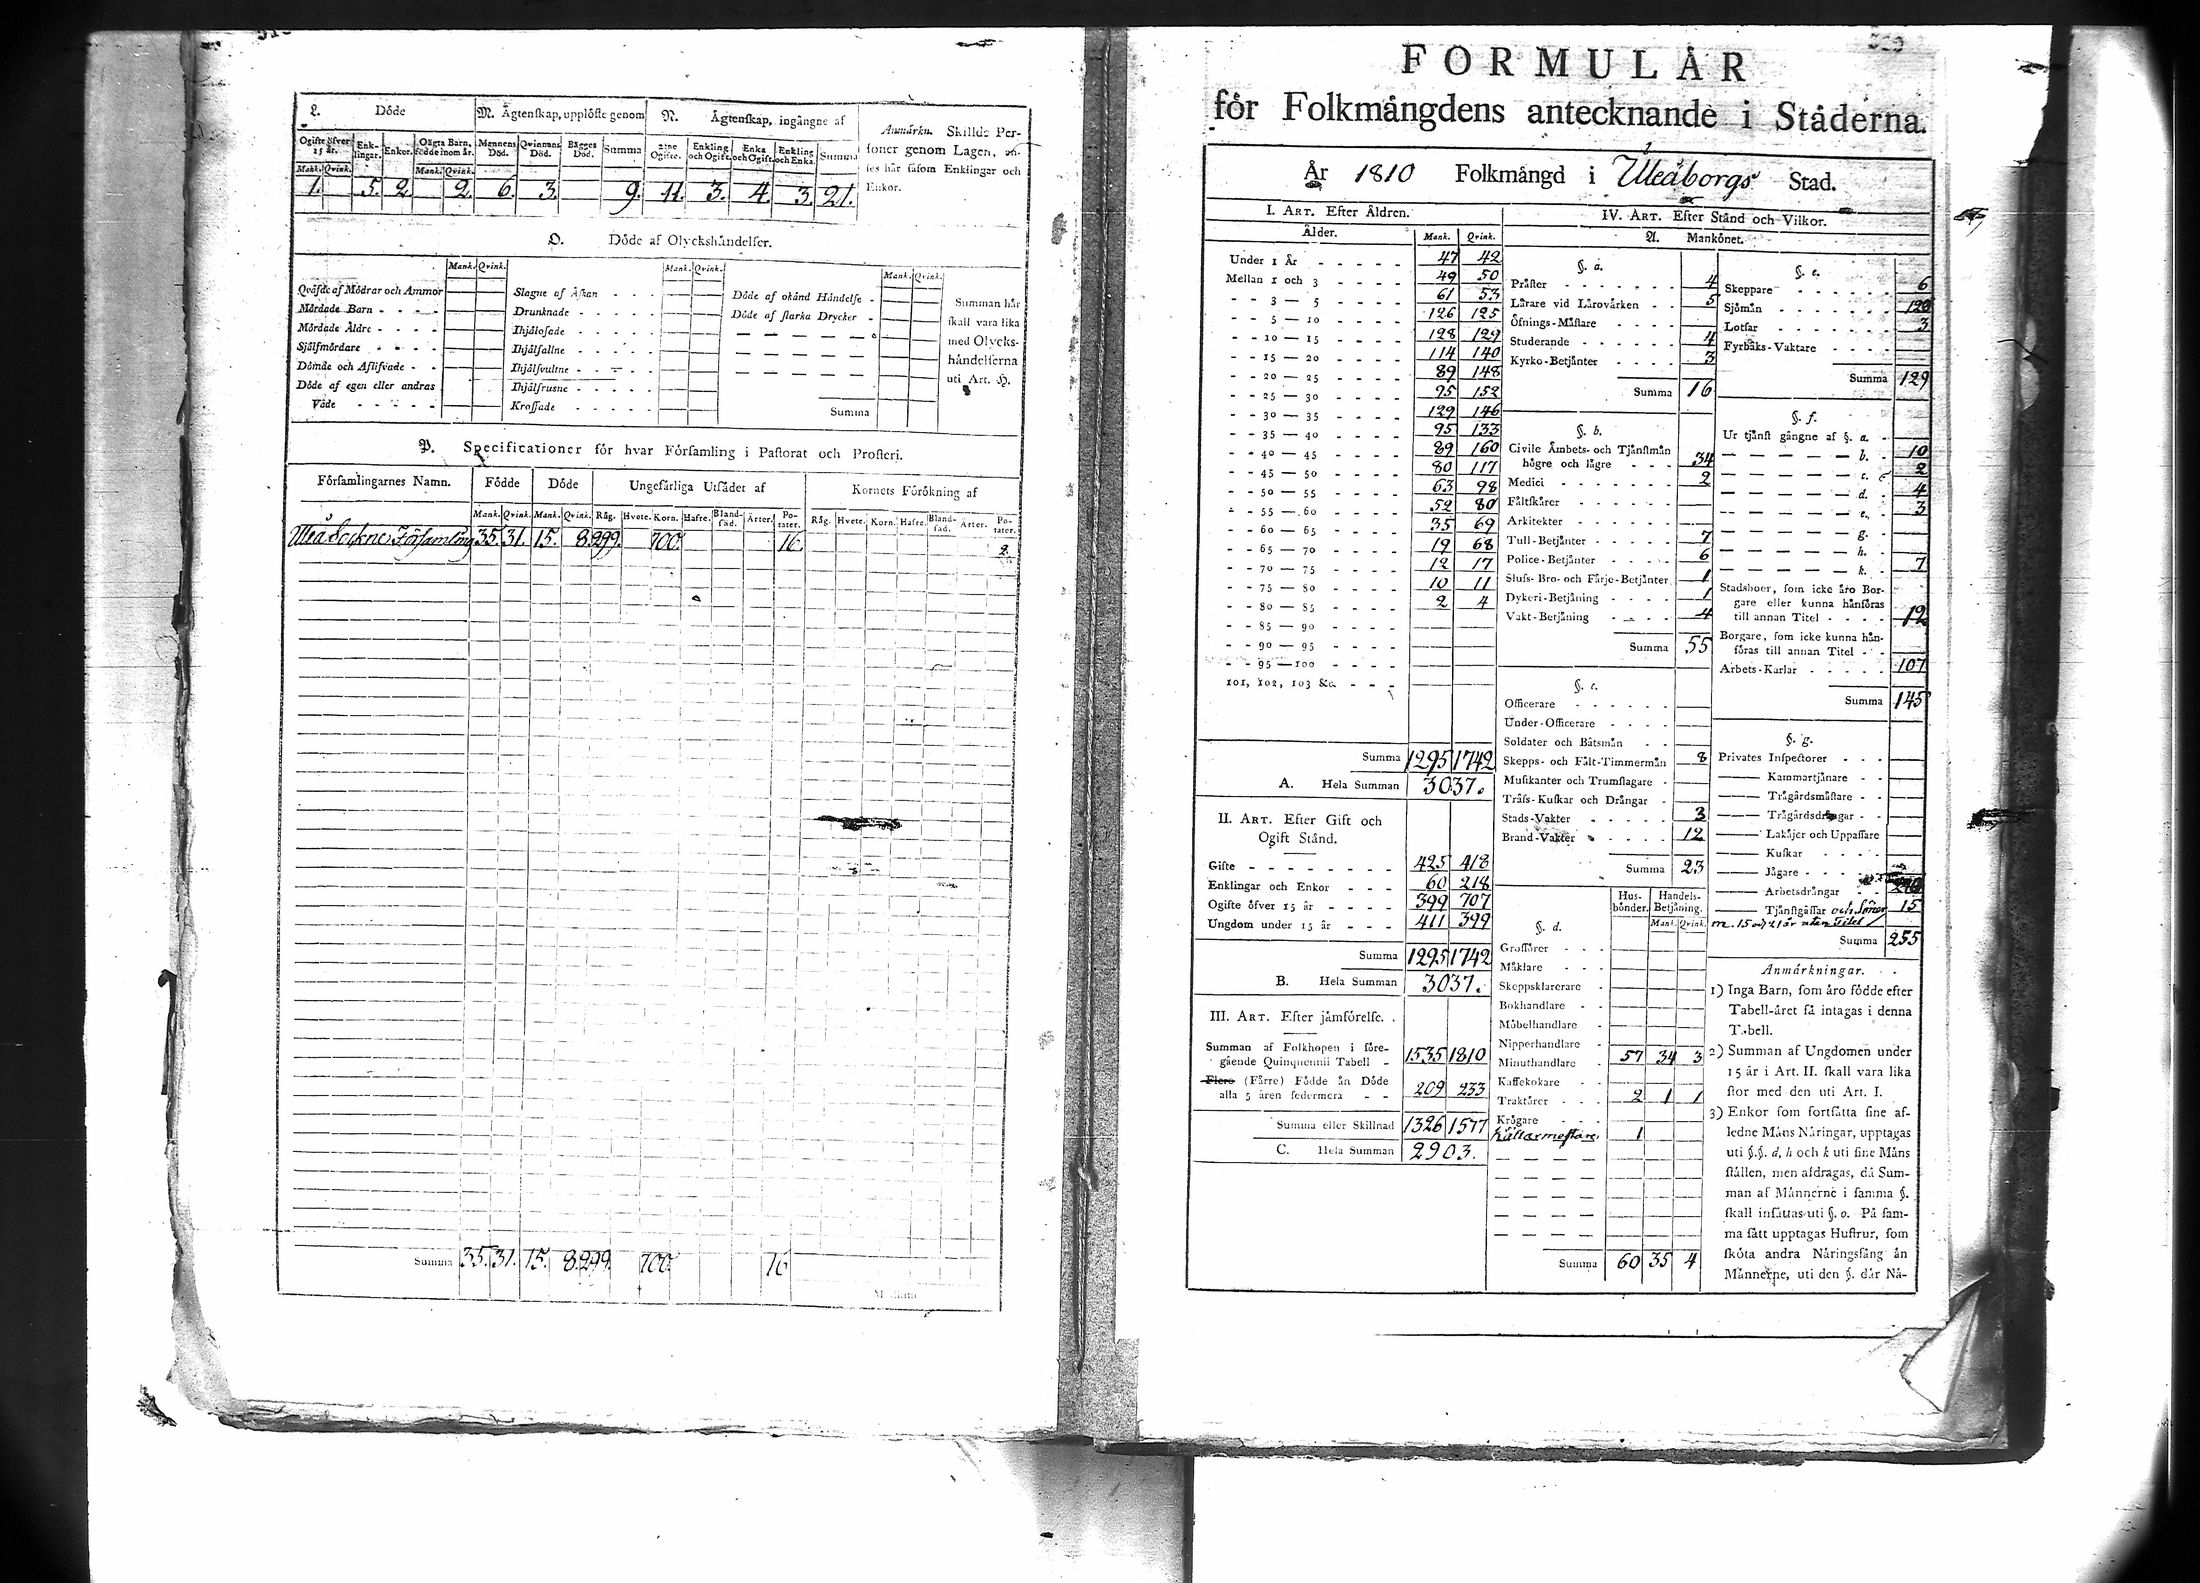 L. Döde
M. Ägtenskap, upplöste genom
N. Ägtenskap, ingångne af
Ogifte öfver 15 år.
Enklingar.
Enkor.
Oägta Barn, födde inom år.
Mennens Död.
Qvinnans Död.
Bägges Död.
Summa
Enkling och Ogift.
Enka och Ogift.
Enkling och Enka.
Summa
Mank. Qvink. Mank. Qvink.
1. 5. 2. 2. 6. 3. 9. 11. 3. 4. 3. 21.
Anmärkn. Skillde Per-
soner genom Lagen, an-
ses här såsom Enklingar och
Enkor.
O. Döde af Olyckshändelser.
Mank. Qvink. Mank. Qvink. Mank. Qvink.
Qväfde af Mödrar och Ammor
Mördade Barn
Mördade Äldre
Självmördare
Dömde och Aflifvade
Döde af egen eller andras
Våde
Slagne af Åskan
Drunknade
Ihjälosade
Ihjälfallne
Ihjälsvultne
Ihjälfrusne
Krossade
Döde af okänd Händelse
Döde af starka Drycker
Summa
Summan här
skall vara lika
med Olycks-
händelserna
uti Art. H.
P. Specificationer för hvar Församling i Pastorat och Prosteri.
Församlingarnes Namn. Födde Döde Ungefärliga Utsädet af Kornets Förökning af
Mank. Qvink. Mank. Qvink. Råg. Hvete. Korn. Hafre. Bland-säd. Ärter. Po-tater. Råg. Hvete. Korn. Hafre. Bland-säd. Ärter. Po-tater.
Uleå Sockne Församling 35. 31. 15. 8. 299. 700. 16. 8.
Summa 35. 31. 15. 8. 299. 700. 16
FORMULÄR
för Folkmängdens antecknande i Städerna.
År 1810 Folkmängd i Uleåborgs Stad.
I. ART. Efter Åldren.
Ålder. Mank. Qvink.
Under 1 År 47 42
Mellan 1 och 3 49 50
3 — 5 61 53
5 — 10 126 125
10 — 15 128 129
15 — 20 114 140
20 — 25 89 148
25 — 30 95 152
30 — 35 129 146
35 — 40 95 133
40 — 45 89 160
45 — 50 80 117
50 — 55 63 98
55 — 60 52 80
60 — 65 35 69
65 — 70 19 68
70 — 75 12 17
75 — 80 10 11
80 — 85 2 4
85 — 90
90 — 95
95 — 100
101, 102, 103 &c.
Summa 1295 1742
A. Hela Summan 3037.
II. ART. Efter Gift och
Ogift Stånd.
Gifte 425 418
Enklingar och Enkor 60 218
Ogifte öfver 15 år 399 707
Ungdom under 15 år 411 399
Summa 1295 1742
B. Hela Summan 3037.
III. ART. Efter jämförelse.
Summan af Folkhopen i före-
gående Quinquennii Tabell 1535 1810
Flere (Färre) Födde än Döde
alla 5 åren sedermera 209 233
Summa eller Skillnad 1326 1577
C. Hela Summan 2903.
IV. ART. Efter Stånd och Vilkor.
A. Mankönet.
§. a.
Präster 4
Lärare vid Lärovärken 5
Öfnings-Mästare
Studerande 4
Kyrko-Betjänter 3
Summa 16
§. b.
Civile Ämbets- och Tjänstmän
högre och lägre 34
Medici 2
Fältskärer
Arkitekter
Tull-Betjänter 7
Police-Betjänter 6
Slufs- Bro- och Färje-Betjänter 1
Dykeri-Betjäning 1
Vakt-Betjäning 4
Summa 55
§. c.
Officerare
Under-Officerare
Soldater och Båtsmän
Skepps- och Fält-Timmermän 8
Musikanter och Trumslagare
Träfs-Kuskar och Drängar
Stads-Vakter 3
Brand-Vakter 12
Summa 23
§. d.
Hus-bönder. Handels-Betjäning.
Mank. Qvink.
Grossörer
Mäklare
Skeppsklarerare
Bokhandlare
Möbelhandlare
Nipperhandlare
Minuthandlare 57 34 3
Kaffekokare
Traktörer 2 1 1
Krögare
Källarmestare 1
Summa 60 35 4
§. e.
Skeppare 6
Sjömän 120
Lotsar 3
Fyrbåks-Vaktare
Summa 129
§. f.
Ur tjänst gångne af §. a.
b. 10
c. 2
d. 4
e. 3
g.
h.
k. 7
Stadsboer, som icke äro Bor-
gare eller kunna hänföras
till annan Titel 12
Borgare, som icke kunna hän-
föras till annan Titel
Arbets-Karlar 107
Summa 145
§. g.
Privates Inspectorer
Kammartjänare
Trägårdsmästare
Trägårdsdrängar
Lakäjer och Uppassare
Kuskar
Jägare
Arbetsdrängar 240
Tjänstgässar och Söner 15
m. 15 och 21 år utan Titel
Summa 255
Anmärkningar.
1) Inga Barn, som äro födde efter
Tabell-året få intagas i denna
Tabell.
2) Summan af Ungdomen under
15 år i Art. II. skall vara lika
stor med den uti Art. I.
3) Enkor som fortsätta sine af-
ledne Mäns Näringar, upptagas
uti §.§. d, h och k uti sine Mäns
ställen, men afdragas, då Sum-
man af Männerne i samma §.
skall insättas uti §. o. På sam-
ma sätt upptagas Hustrur, som
sköta andra Näringsfång än
Männerne, uti den §. där Nä-